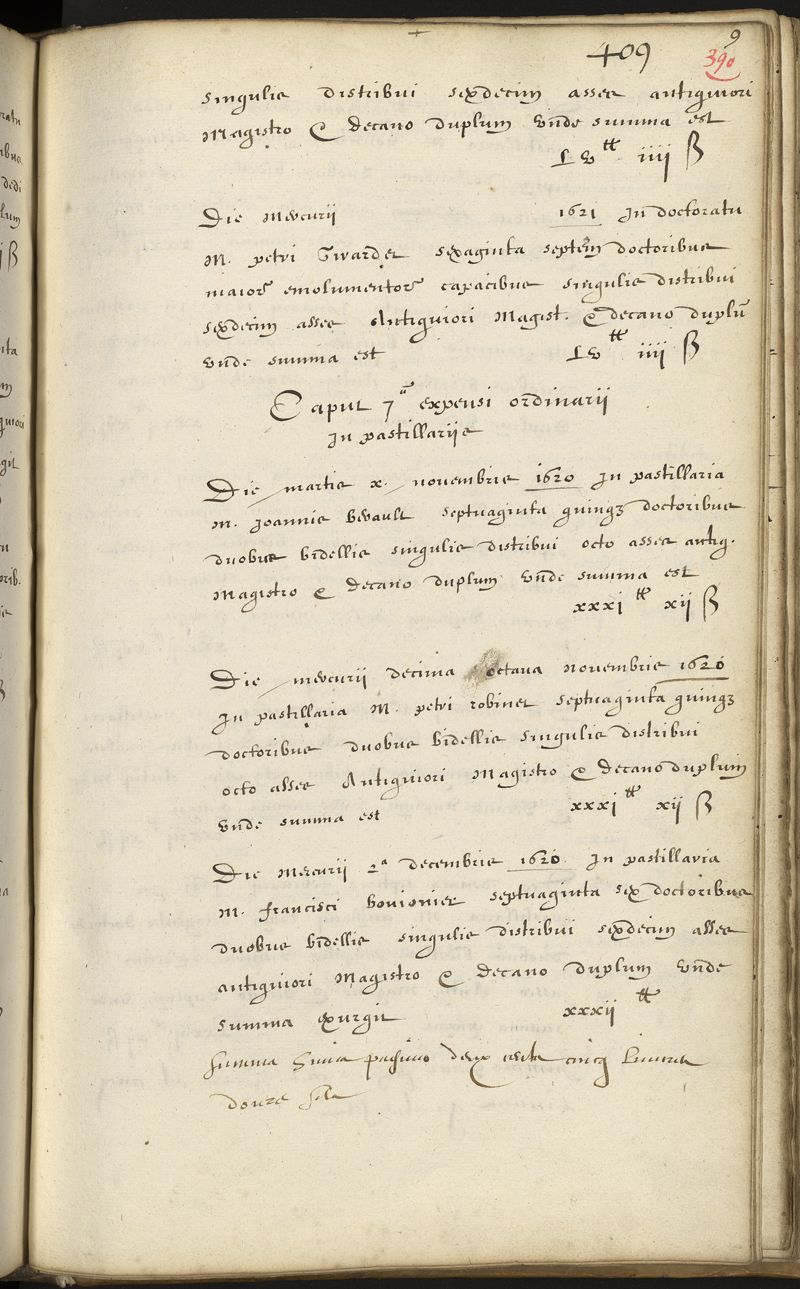 9
409
390
singulis distribui sexdecim asses antiquiori
Magistro & decano duplum unde summa est
LV ₶ iiii ß
Die Mercurii 1621 In doctoratu
M. petri Girardet sexaginta septem doctoribus
maior emolumentor capacibus singulis distribui
sexdecim asses Antiquiori Magist. & decano duplũ
unde summa est LV ₶ iiii ß
Caput 7 expensi ordinarii
In pastillariis
Die martis x. novembris 1620 In pastillaria
M. Joannis septuaginta quinq3 doctoribus
duobus bidellis singulis distribui octo asses antiq.
Magistro & decano duplum unde summa est
xxxi ₶ xii ß
Die mercurii decima octava novembris 1620
In pastillaria M. petri robinet septuaginta quinq3
doctoribus duobus bidellis singulis distribui
octo asses Antiquiori Magistro & decano duplum
unde summa est xxxi ₶ xii ß
Die Mercurii 2a decembris 1620 In pastillaria
M. francisci septuaginta sex doctoribus
duobus bidellis singulis distribui sexdecim asses
antiquiori Magistro & decano duplum unde
summa exurgit xxxii ₶
Summa paginae cinq
douze